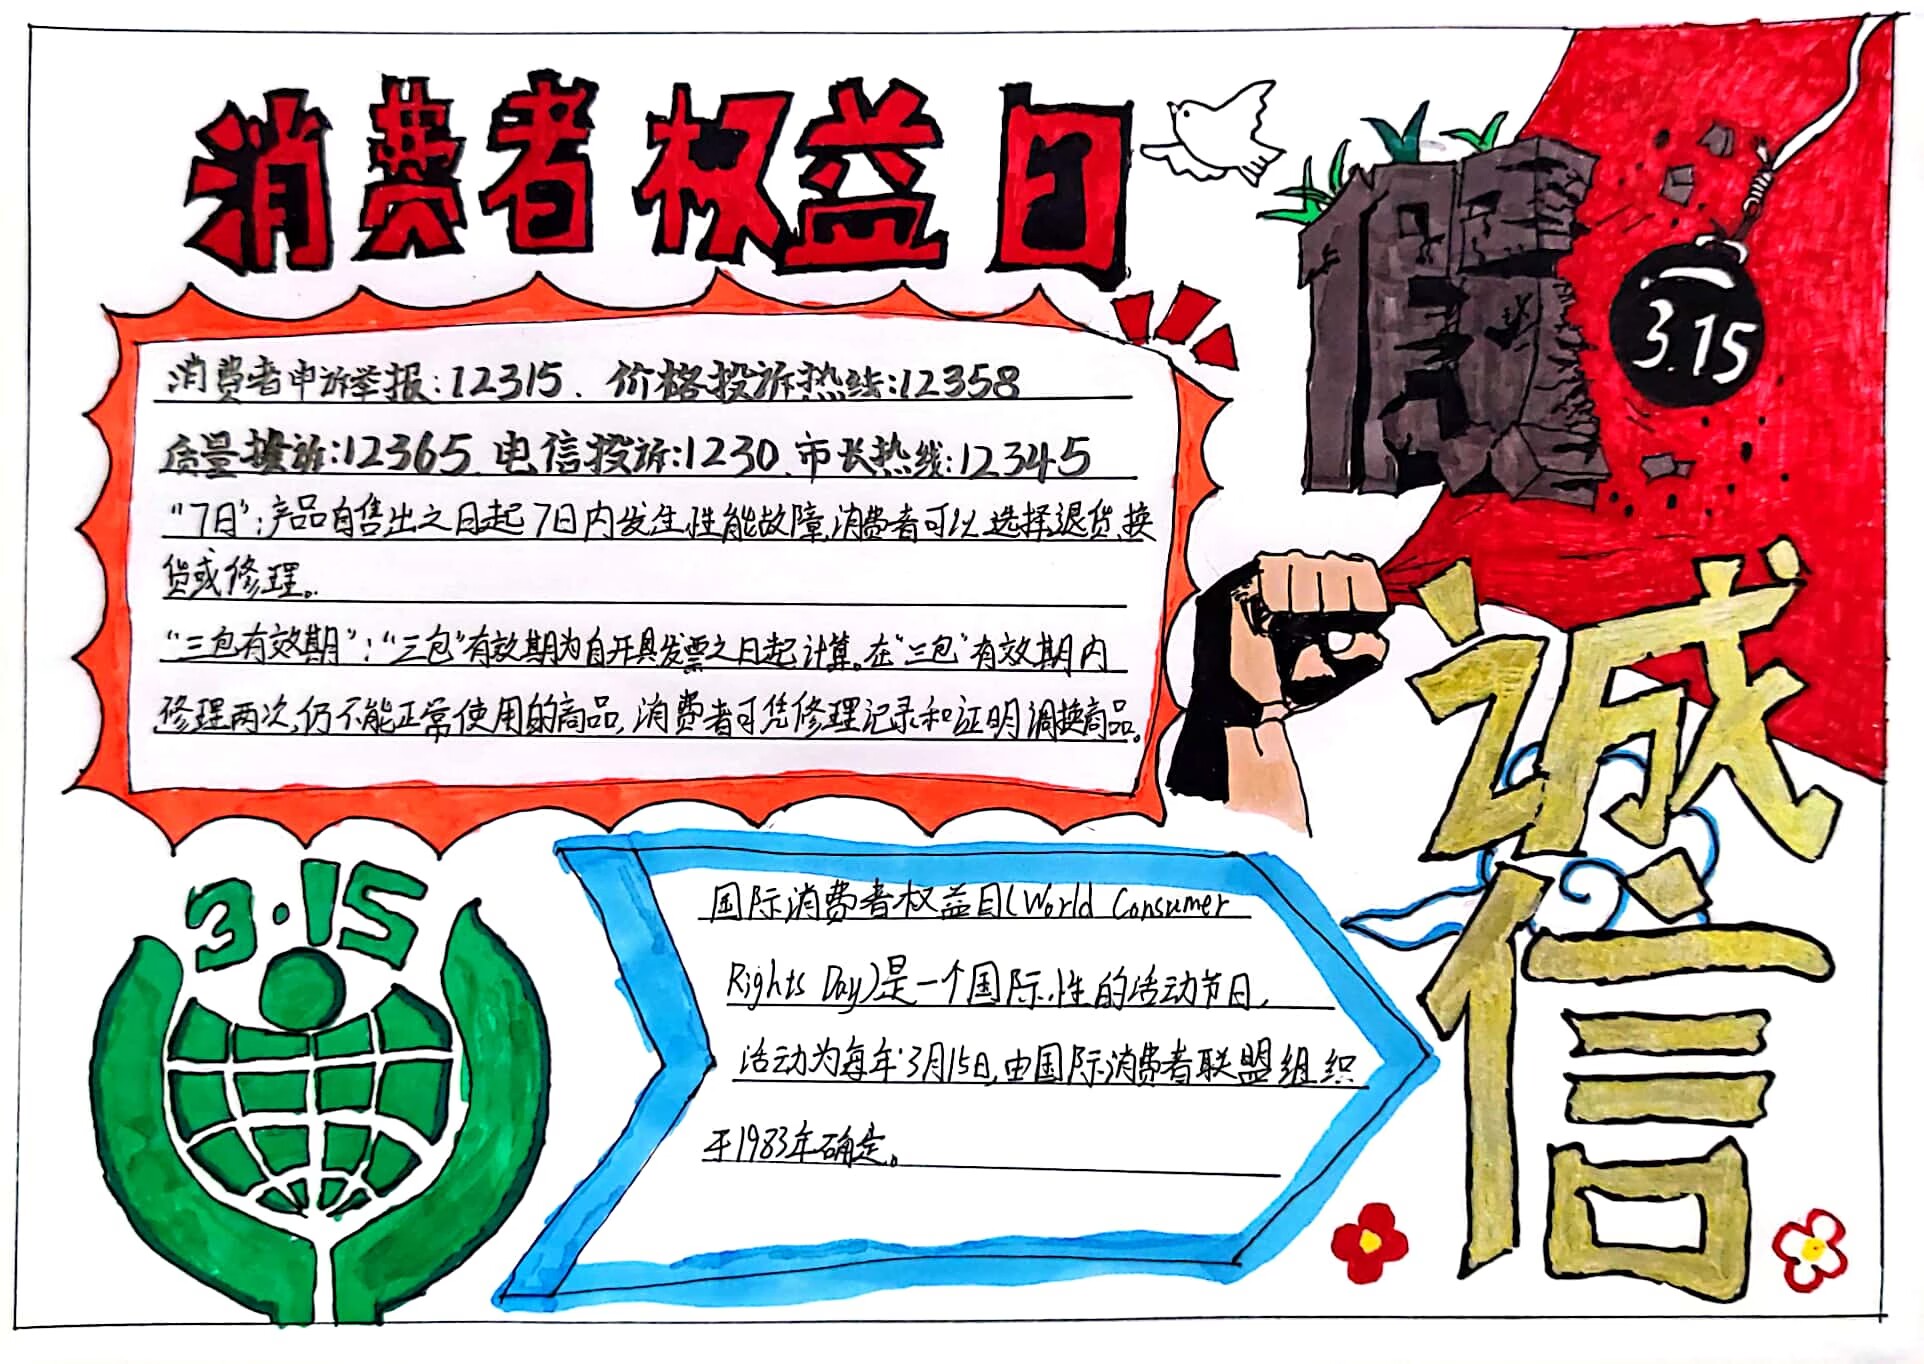 消费者权益日
假
3.15
消费者申诉举报:12315、价格投诉热线:12358
质量投诉:12365、电信投诉:1230、市长热线:12345
“7日”:产品自售出之日起7日内发生性能故障,消费者可以选择退货、换
货或修理。
“三包有效期”:“三包”有效期为自开具发票之日起计算。在“三包”有效期内
修理两次,仍不能正常使用的商品,消费者可凭修理记录和证明调换商品。
诚信
3·15
国际消费者权益日(World Consumer
Rights Day)是一个国际性的活动节日,
活动为每年3月15日,由国际消费者联盟组织
于1983年确定。